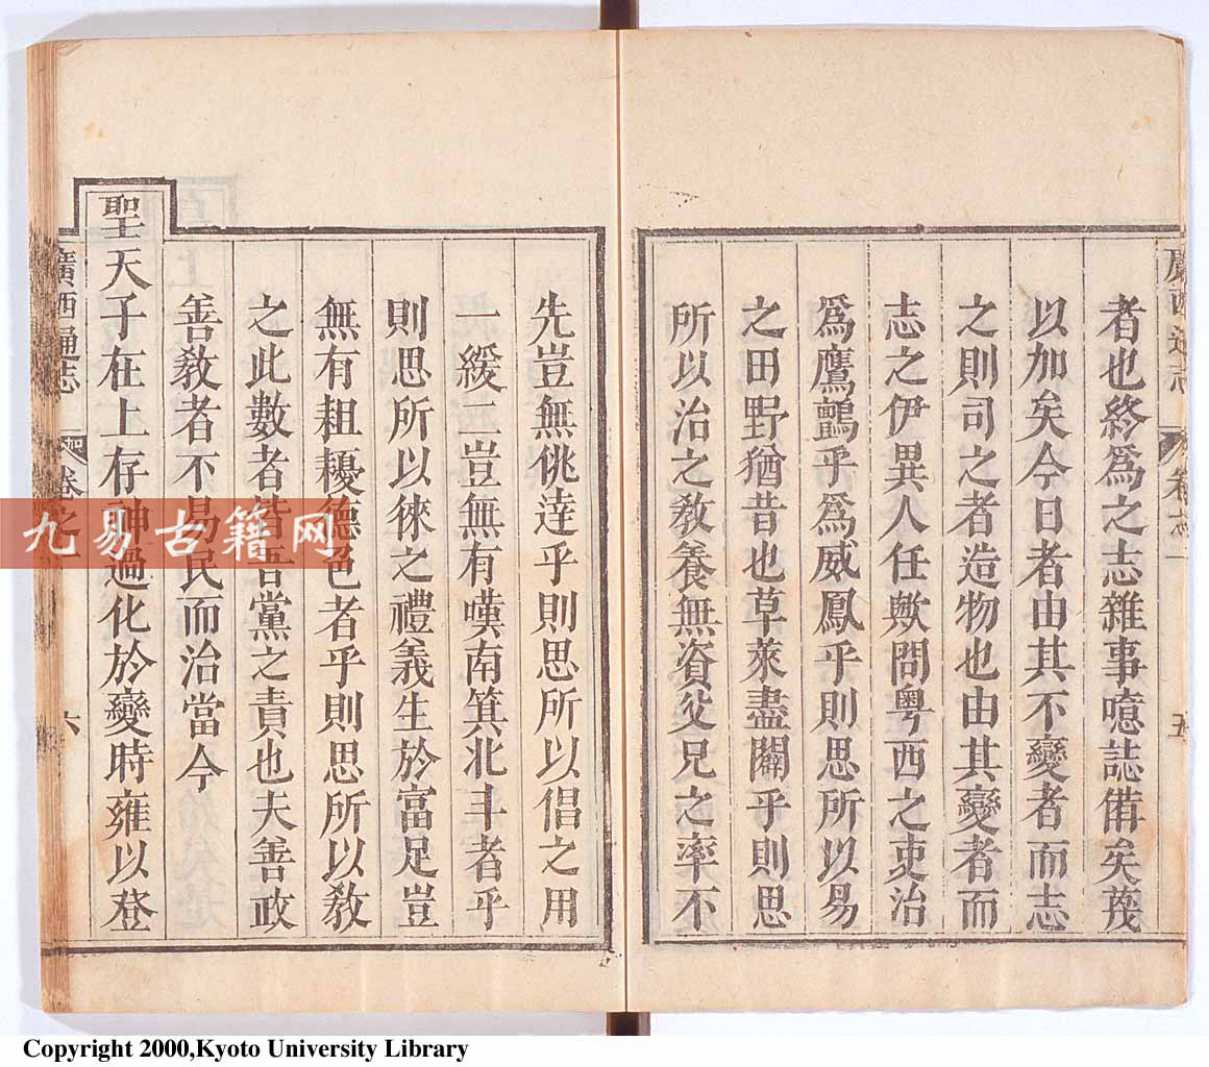 廣西通志
卷之一
五
者也終爲之志雜事噫誌備矣蔑
以加矣今日者由其不變者而志
之則司之者造物也由其變者而
志之伊異人任歟問粵西之吏治
爲鷹鸇乎爲威鳳乎則思所以易
之田野猶昔也草萊盡闢乎則思
所以治之敎養無資父兄之率不
先豈無佻達乎則思所以倡之用
一緩二豈無有嘆南箕北斗者乎
則思所以徠之禮義生於富足豈
無有耝耰德色者乎則思所以敎
之此數者皆吾黨之責也夫善政
善敎者不易民而治當今
聖天子在上存神過化於變時雍以登
廣西通志
卷之一
六
九易古籍网
Copyright 2000,Kyoto University Library